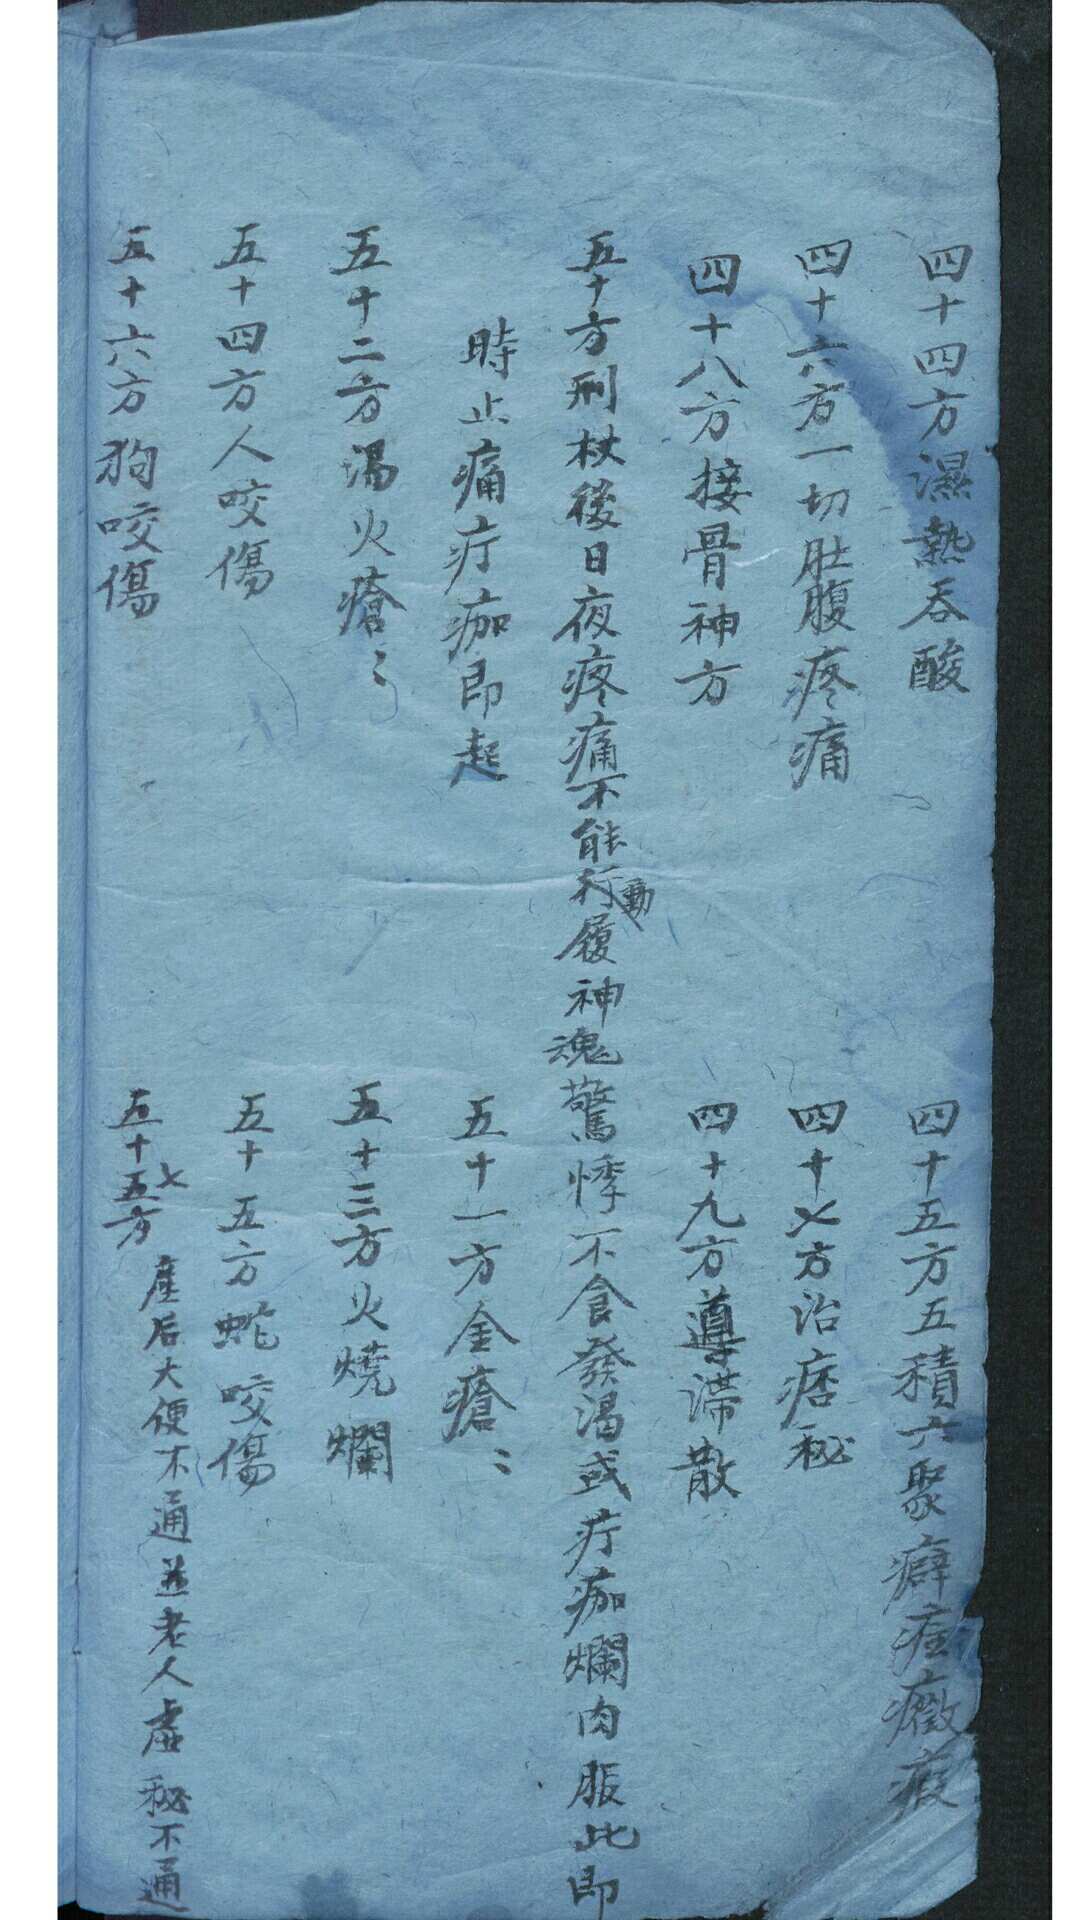 四十四方濕熱吞酸　四十五方五積六聚癖痓癥瘕
四十六方一切肚腹疼痛　四十七方治痞秘
四十八方接骨神方　四十九方導滯散
五十方刑杖後日夜疼痛不能行動履神魂驚悸不食發渴或疔痂爛肉脹此即
時止痛疔痂即起　五十一方金瘡〻
五十二方湯火瘡〻　五十三方火燒爛
五十四方人咬傷　五十五方蛇咬傷
五十六方狗咬傷　五十五七方產后大便不通並老人虛秘不通